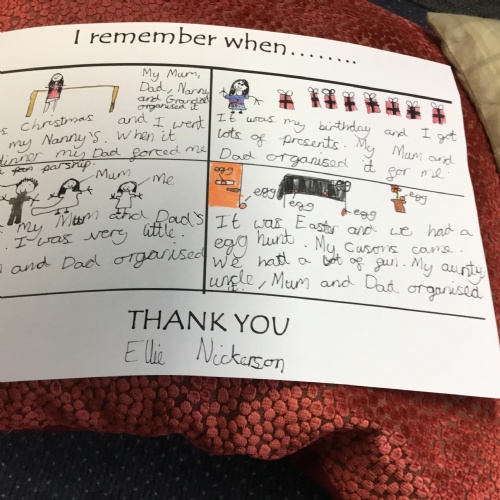 I remember when........
My Mum,
Dad, Nanny
and Grandad
organised it
s Christmas and I went
my Nanny's. When it
dinner my Dad gorced me
parship.
It was my birthday and I got
lots of presents. My Mum and
Dad organised it gor me
Mum me
my Mum and Dad's
I was very little.
and Dad organised
egg egg egg egg
It was Easter and we had a
egg hunt. My cusons came.
We had a lot of gun. My aunty,
uncle, Mum and Dad organised
it.
THANK YOU
Ellie Nickerson